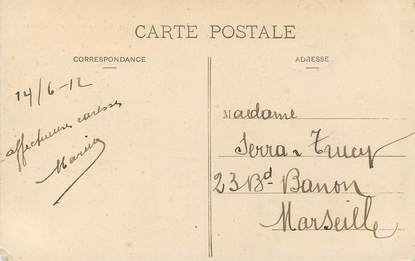 CARTE POSTALE
CORRESPONDANCE
ADRESSE
14/6-12
affectueuses caresses
Maria
Madame
Serra-Trucy
23 Bd- Banon
Marseille